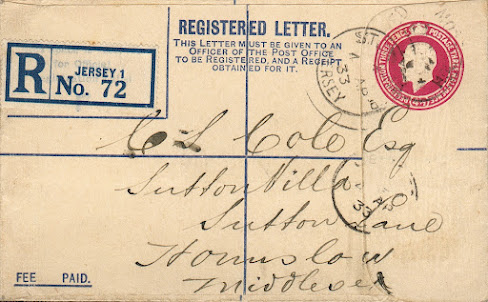 REGISTERED LETTER.
THIS LETTER MUST BE GIVEN TO AN
OFFICER OF THE POST OFFICE
TO BE REGISTERED, AND A RECEIPT
OBTAINED FOR IT.
R JERSEY 1
No. 72
JERSEY
33
REGISTRATION THREEPENCE POSTAGE
C L Cole Esq
Sutton Villa
Sutton Lane
Hounslow
Middlesex
33
FEE PAID.